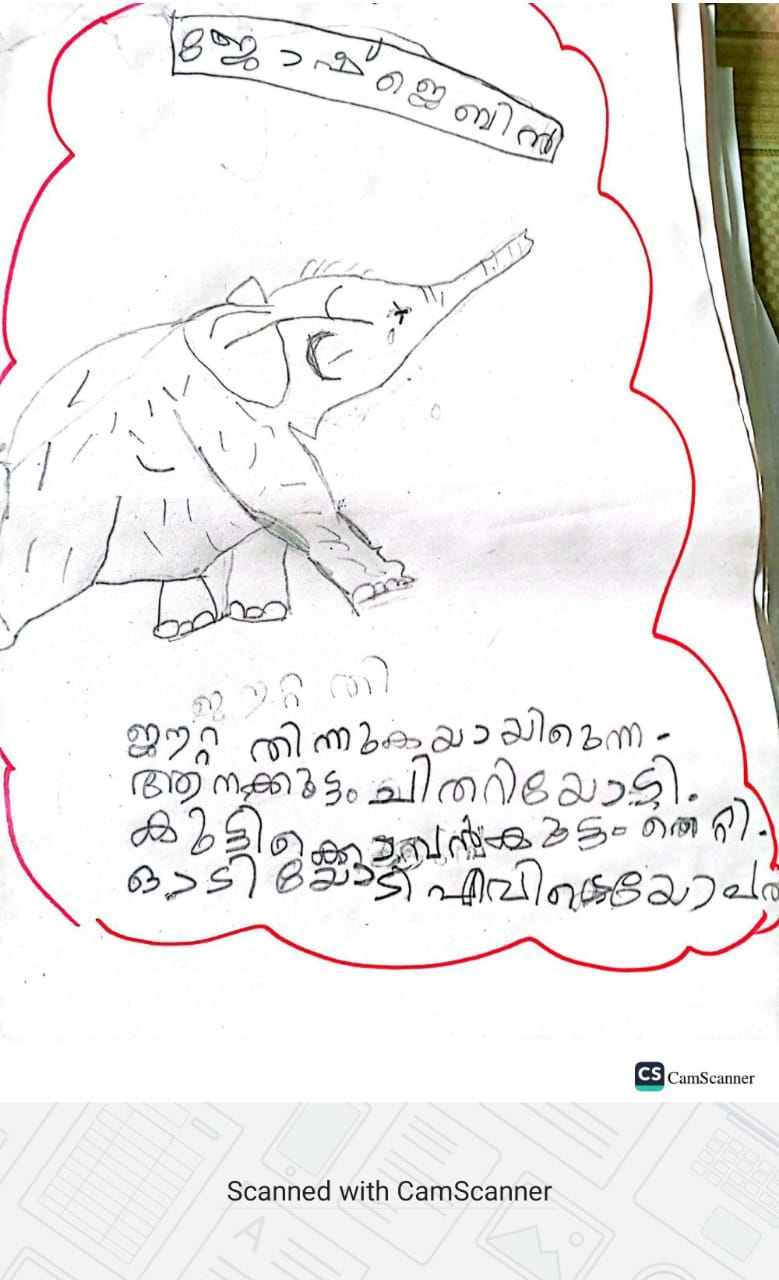 ജോഷ് ജെബിൻ
ഈറ്റ തി
ഈറ്റ തിന്നുകയായിരുന്ന.
ആനക്കൂട്ടം ചിതറിയോടി.
കുട്ടിക്കൊമ്പൻ കൂട്ടം തെറ്റി.
ഓടിയോടി എവിടെയോ
CS CamScanner
Scanned with CamScanner